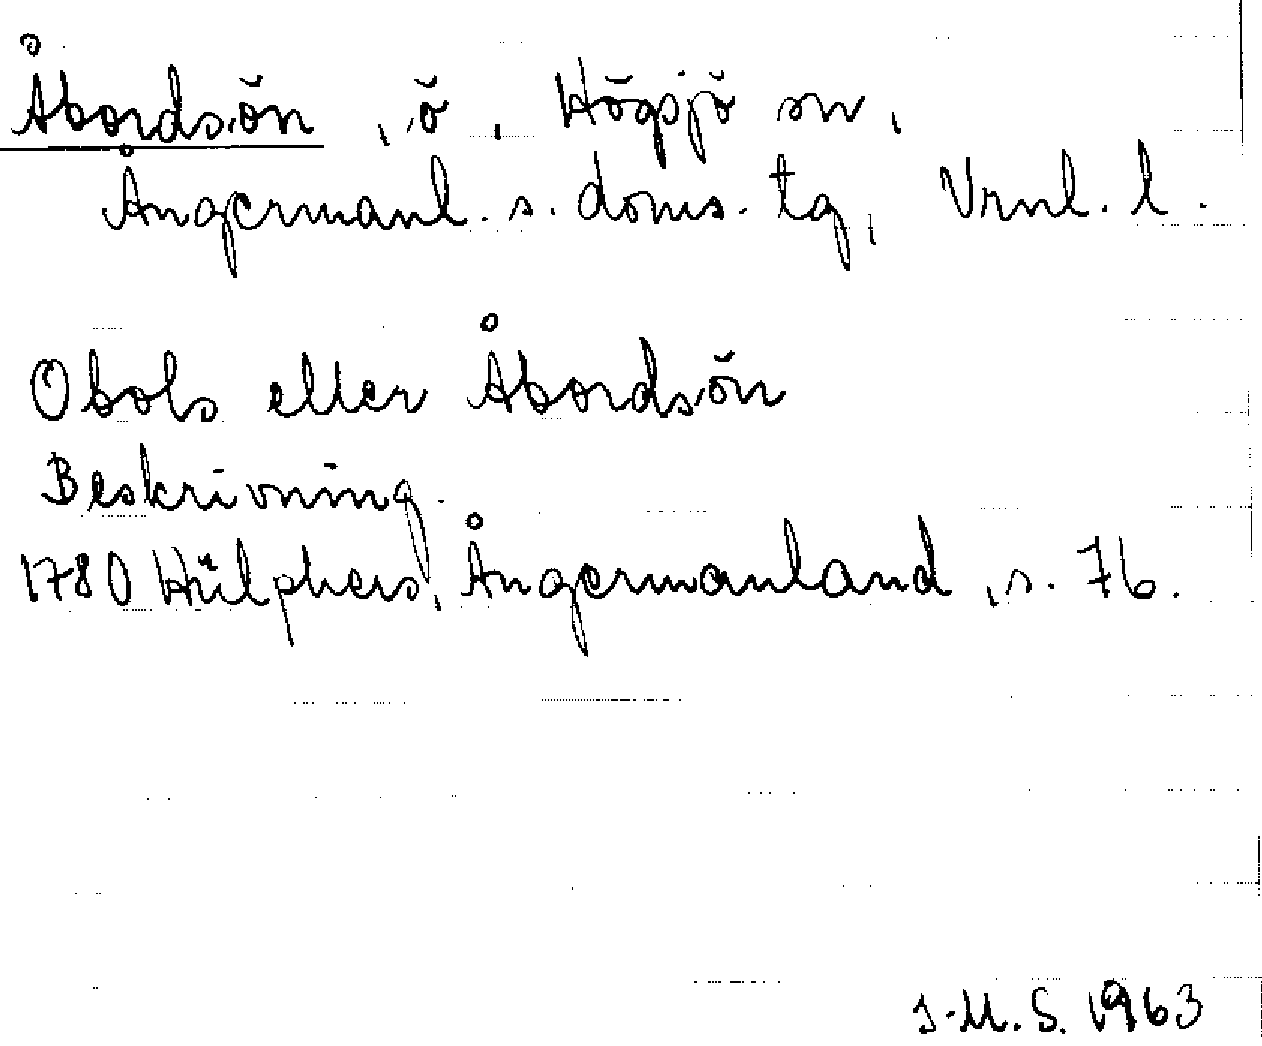 Åbordsön, ö, Högsjö sn,
Ångermanl. s. doms. tg, Vrnl. l.
Obols eller Åbordsön
Beskrivning.
1780 Hülphers, Ångermanland, s. 76.
I-M. S. 1963